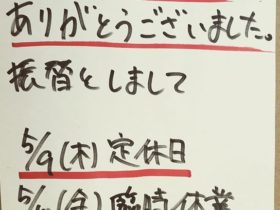 ありがとうございました。
振替としまして
5/9(木)定休日
(金)臨時休業